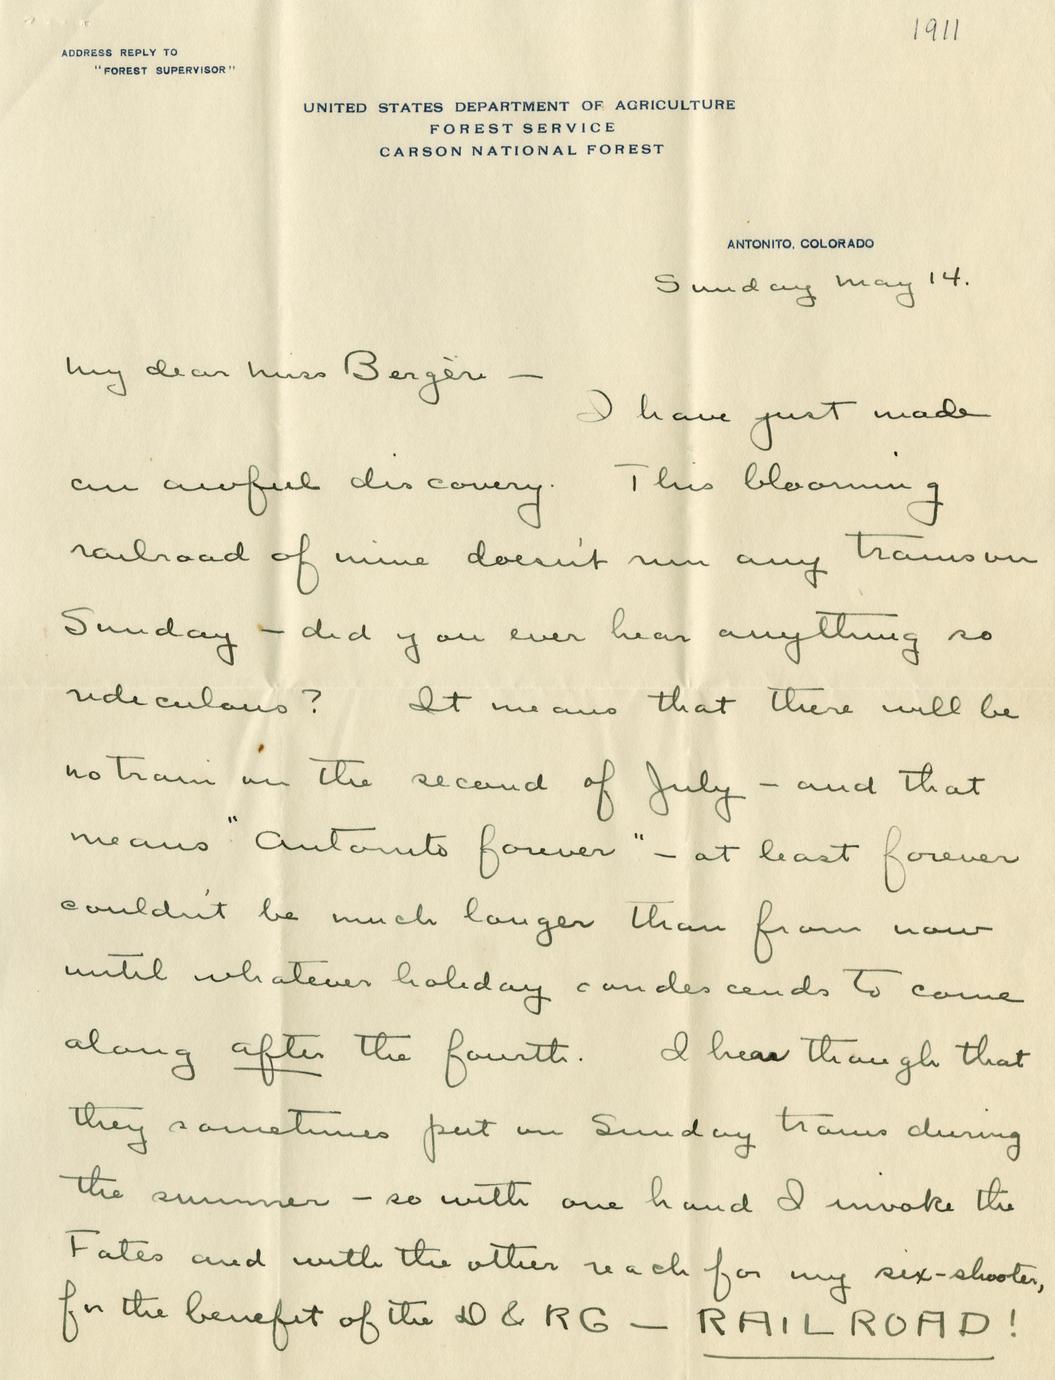 1911
ADDRESS REPLY TO
"FOREST SUPERVISOR"
UNITED STATES DEPARTMENT OF AGRICULTURE
FOREST SERVICE
CARSON NATIONAL FOREST
ANTONITO, COLORADO
Sunday May 14.
My dear Miss Bergère —
I have just made
an awful discovery. This blooming
railroad of mine doesn't run any trains on
Sunday – did you ever hear anything so
rediculous? It means that there will be
no train on the second of July – and that
means "Antonito forever" – at least forever
couldn't be much longer than from now
until whatever holiday condescends to come
along after the fourth. I hear though that
they sometimes put on Sunday trains during
the summer – so with one hand I invoke the
Fates and with the other reach for my six-shooter,
for the benefit of the D & RG — RAILROAD!